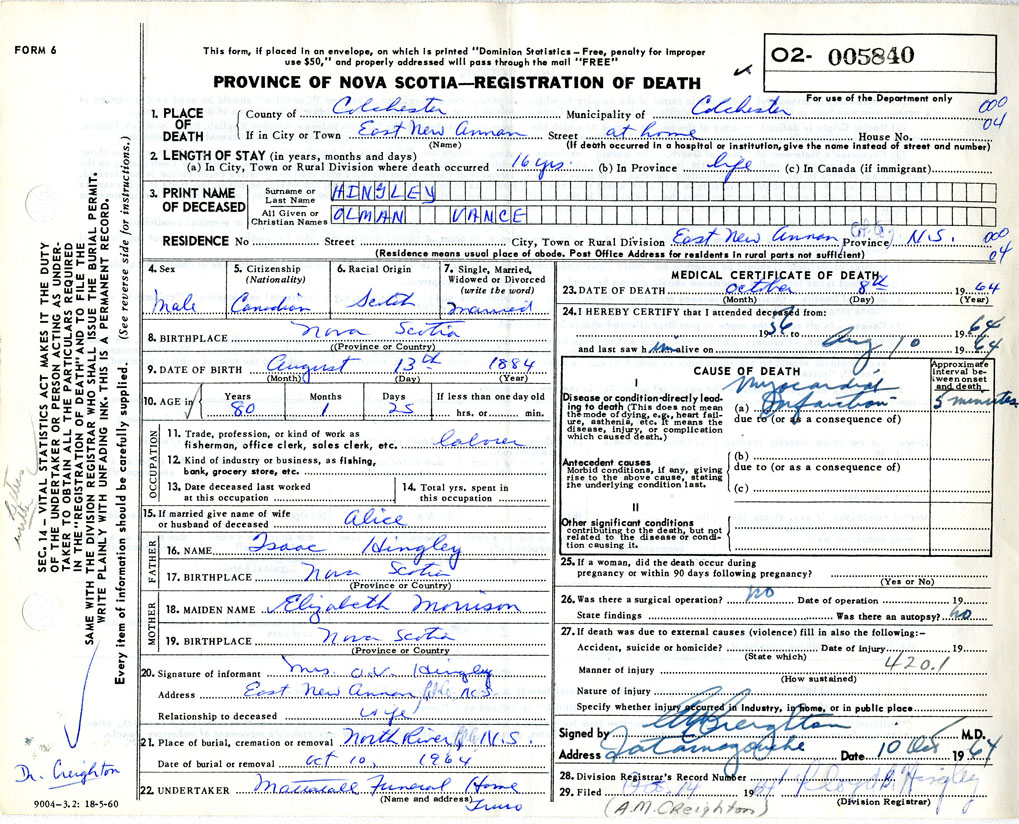 FORM 6
This form, if placed in an envelope, on which is printed "Dominion Statistics – Free, penalty for improper
use $50," and properly addressed will pass through the mail "FREE"
PROVINCE OF NOVA SCOTIA—REGISTRATION OF DEATH
O2- 005840
For use of the Department only
1. PLACE OF DEATH
County of Colchester Municipality of Colchester 000
If in City or Town East New Annan Street at home House No. 04
(Name) (If death occurred in a hospital or institution, give the name instead of street and number)
2. LENGTH OF STAY (in years, months and days)
(a) In City, Town or Rural Division where death occurred 16 yrs. (b) In Province life (c) In Canada (if immigrant)
3. PRINT NAME OF DECEASED
Surname or Last Name HINGLEY
All Given or Christian Names OLMAN VANCE
RESIDENCE No Street City, Town or Rural Division East New Annan Col. Co. Province N.S. 000
04
(Residence means usual place of abode. Post Office Address for residents in rural parts not sufficient)
4. Sex
Male
5. Citizenship
(Nationality)
Canadian
6. Racial Origin
Scotch
7. Single, Married,
Widowed or Divorced
(write the word)
Married
8. BIRTHPLACE Nova Scotia
((Province or Country)
9. DATE OF BIRTH August 13th 1884
(Month) (Day) (Year)
10. AGE in
Years Months Days If less than one day old
80 1 25 hrs. or min.
OCCUPATION
11. Trade, profession, or kind of work as
fisherman, office clerk, sales clerk, etc. laborer
12. Kind of industry or business, as fishing,
bank, grocery store, etc.
13. Date deceased last worked
at this occupation
14. Total yrs. spent in
this occupation
15. If married give name of wife
or husband of deceased Alice
FATHER
16. NAME Isaac Hingley
17. BIRTHPLACE Nova Scotia
(Province or Country)
MOTHER
18. MAIDEN NAME Elizabeth Morrison
19. BIRTHPLACE Nova Scotia
(Province or Country
20. Signature of informant Mrs. O.V. Hingley
Address East New Annan, Col. Co. N.S
Relationship to deceased wife
21. Place of burial, cremation or removal North River, Col. Co. N.S.
Date of burial or removal Oct 10, 1964
22. UNDERTAKER Mattatall Funeral Home
(Name and address) Truro
MEDICAL CERTIFICATE OF DEATH
23. DATE OF DEATH October 8th 1964
(Month) (Day) (Year)
24. I HEREBY CERTIFY that I attended deceased from:
1956 to 1964
and last saw him alive on Aug 10 1964
CAUSE OF DEATH
Approximate
interval be-
tween onset
and death
I
Disease or condition directly lead-
ing to death (This does not mean
the mode of dying, e.g., heart fail-
ure, asthenia, etc. It means the
disease, injury, or complication
which caused death.)
Myocardial
(a) Infarction 5 minutes
due to (or as a consequence of)
Antecedent causes
Morbid conditions, if any, giving
rise to the above cause, stating
the underlying condition last.
(b)
due to (or as a consequence of)
(c)
II
Other significant conditions
contributing to the death, but not
related to the disease or condi-
tion causing it.
25. If a woman, did the death occur during
pregnancy or within 90 days following pregnancy?
(Yes or No)
26. Was there a surgical operation? no Date of operation 19
State findings Was there an autopsy? no
27. If death was due to external causes (violence) fill in also the following:–
Accident, suicide or homicide? Date of injury 19
(State which)
420.1
Manner of injury
(How sustained)
Nature of injury
Specify whether injury occurred in industry, in home, or in public place
Signed by A M Creighton M.D.
Address Tatamagouche Date 10 Oct 1964
28. Division Registrar's Record Number
29. Filed Oct. 14 1964 Lloyd R. Hingley
(Division Registrar)
(A.M. CREIGHTON)
SEC. 14 – VITAL STATISTICS ACT MAKES IT THE DUTY
OF THE UNDERTAKER OR PERSON ACTING AS UNDER-
TAKER TO OBTAIN ALL THE PARTICULARS REQUIRED
IN THE "REGISTRATION OF DEATH" AND TO FILE THE
SAME WITH THE DIVISION REGISTRAR WHO SHALL ISSUE THE BURIAL PERMIT.
WRITE PLAINLY WITH UNFADING INK. THIS IS A PERMANENT RECORD.
Every item of information should be carefully supplied. (See reverse side for instructions.)
Dr. Creighton
9004-3.2: 18-5-60